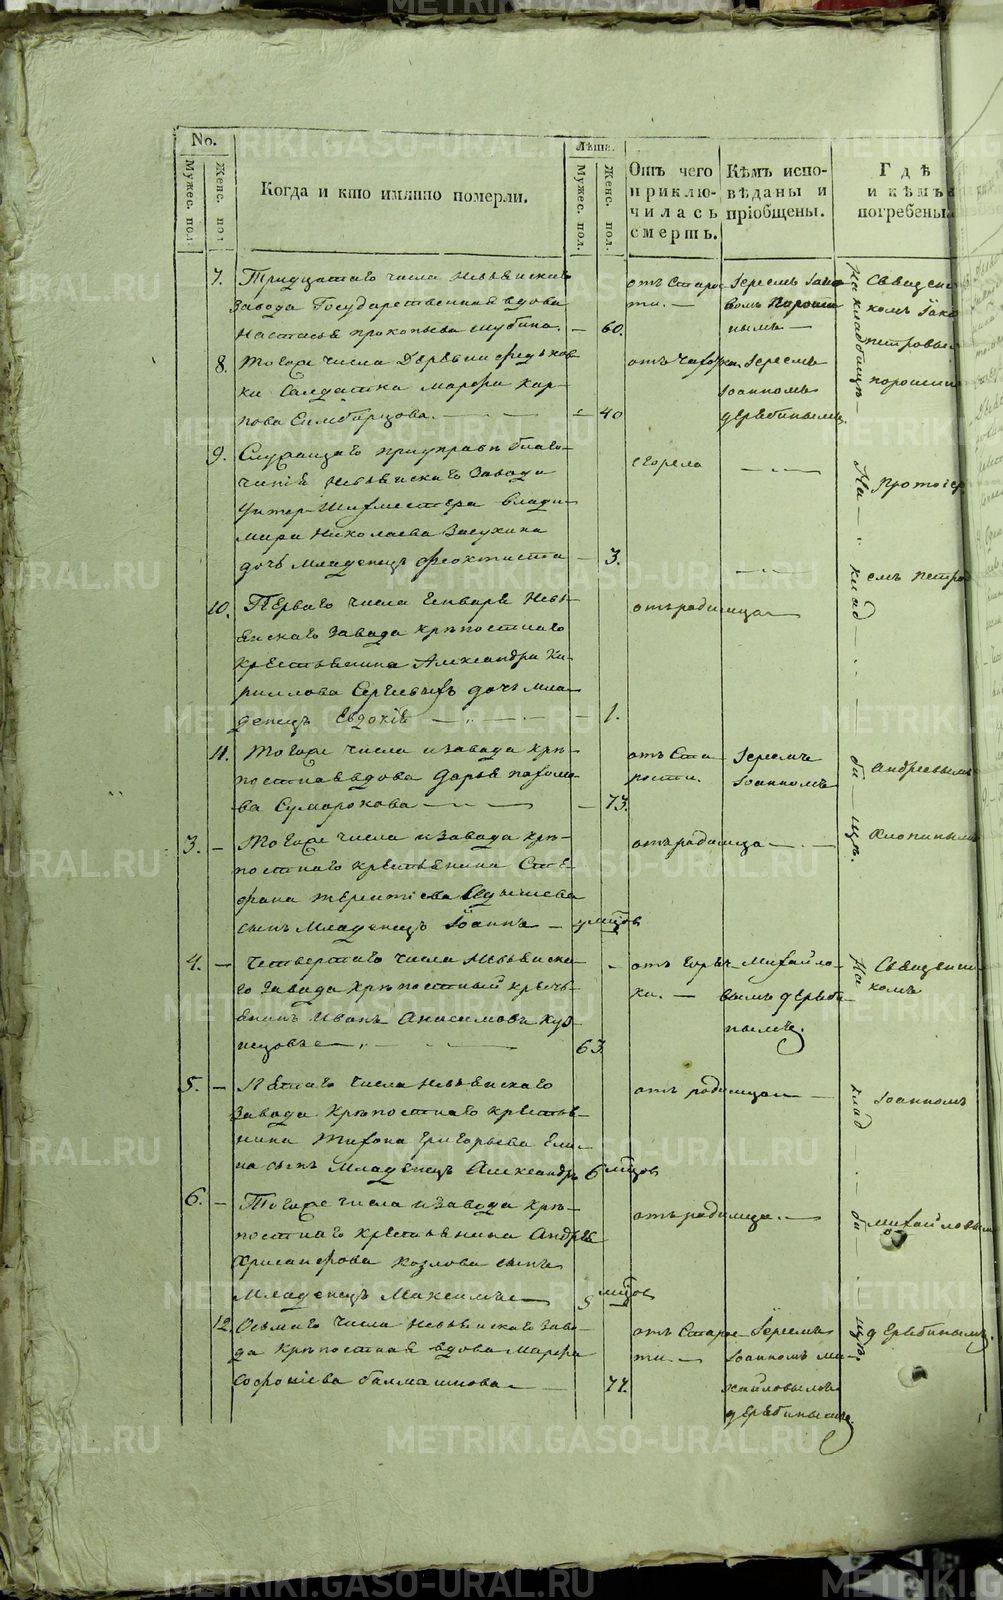 No.
Мужес. пол
Женс. пол
Когда и кто имянно померли.
Лѣта.
Мужес. пол.
Женс. пол.
Отъ чего приклю-чилась смерть.
Кѣмъ испо-вѣданы и пріобщены.
Гдѣ и кѣмъ погребены
7. Тридцатаго числа Невьянскаго
завода Государственная вдова
Настасья прокопьева шубина. — 60.
отъ Старос
ти. —
Іереемъ Іако
вомъ
нымъ —
на кладбищѣ —
Священ
комъ Іако
петровым
8. Тогоже числа Деревни
ки Салдатка марфа кар-
пова Симбирцова. — — 40
отъ чахотки
Іереемъ
Іоанномъ
дерябинымъ.
9. Служащаго приуправѣ благо-
чинія Невьянскаго Завода
Унтер-Шихмейстера влади-
мира Николаева Засухина
дочь младенецъ феоктиста — 3.
сгорела — „ —
На клад би щѣ.
Протоіер
емъ петром
10. Перваго числа Генваря Невь-
янскаго завода крѣпостнаго
крестьянина Александра Ки-
риллова Сергиевыхъ дочь мла-
денецъ Евдокія — „ — — 1.
отъ родимца —
11. Тогоже числа и завода крѣ-
постная вдова Дарья пахомо-
ва Сумарокова — „ — — 73.
отъ Ста
рости.
Іереемъ
Іоанномъ
Андреевымъ
3. — Тогоже числа и завода крѣ-
постнаго крестьянина Сте-
фана терентіева
сынъ младенецъ Іоаннъ — мцов
отъ родимца — . —
4. — Четвертаго числа Невьянска-
го завода крѣпостный кресть-
янинъ Иванъ Анисимовъ куз-
нецовъ — „ — 63.
отъ горяч-
ки. —
Михайло-
вымъ дереби-
нымъ.
На клад би щѣ.
Священни-
комъ
5. — Пятаго числа невьянскаго
завода крѣпостнаго крестья-
нина Тихона григорьева Ели-
на сынъ младенецъ Александръ 6 мцов
отъ родимца —
Іоанномъ
6. — Тогоже числа и завода крѣ-
постнаго крестьянина Андрея
хрисанфова козлова сынъ
младенецъ Максимъ — мцов
отъ родимца. —
михайловым
12. Осьмаго числа Невьянскаго заво-
да крѣпостная вдова марфа
софоніева балмашнова — 77.
отъ Старос
ти. —
Іереемъ
Іоанномъ ми-
хайловымъ
дерябинымъ.
дерябинымъ.
METRIKI.GASO-URAL.RU